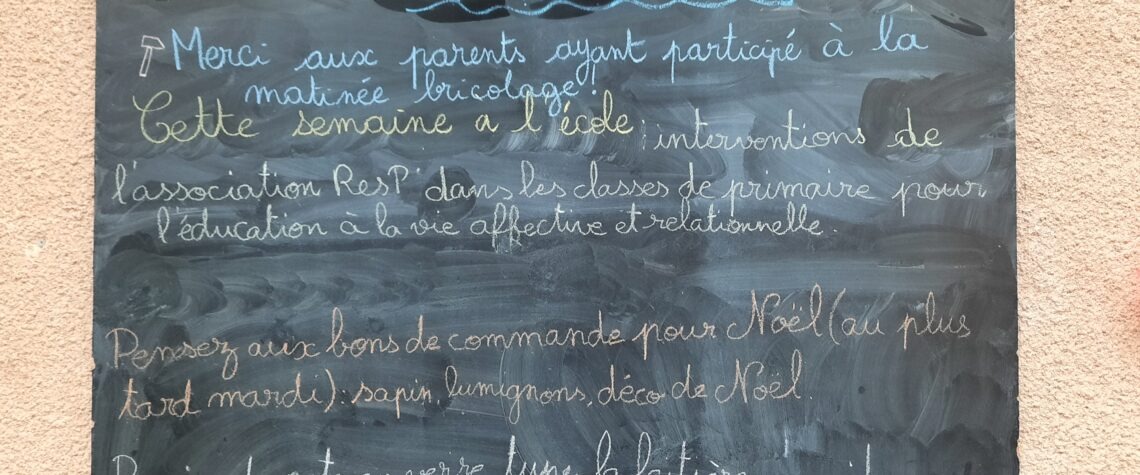 Merci aux parents ayant participé à la
matinée bricolage!
Cette semaine a l'école : interventions de
l'association ResP' dans les classes de primaire pour
l'éducation à la vie affective et relationnelle.
Pensez aux bons de commande pour Noël (au plus
tard mardi) : sapin, lumignons, déco de Noël.
verre type la laitière